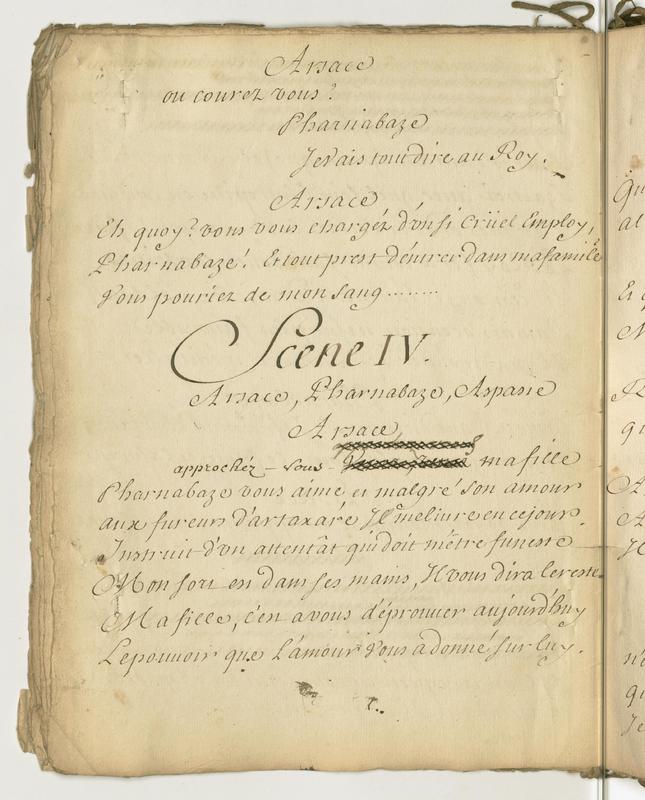 Arsace
ou courez vous?
Pharnabaze
Je vais tout dire au Roy.
Arsace
Eh quoy? vous vous chargéz d'un si Crüel Employ,
Pharnabaze! Et tout prest d'éntrer dans ma famile
Vous pouriez de mon sang ........
Scene IV.
Arsace, Pharnabaze, Aspasie
Arsace
approchéz - vous - ma fille
Pharnabaze vous aime et malgré son amour
aux fureurs d'artaxare Il me livre en ce jour.
Instruit d'un attentât qui doit m'être funeste
Mon sort est dans ses mains, Il vous dira le reste.
Ma fille, c'en a vous d'éprouver aujourd'huy
Le pouvoir que L'amour Vous a donné sur luy.
Qu
al
Et
qu
A
A
n'e
qu
Je